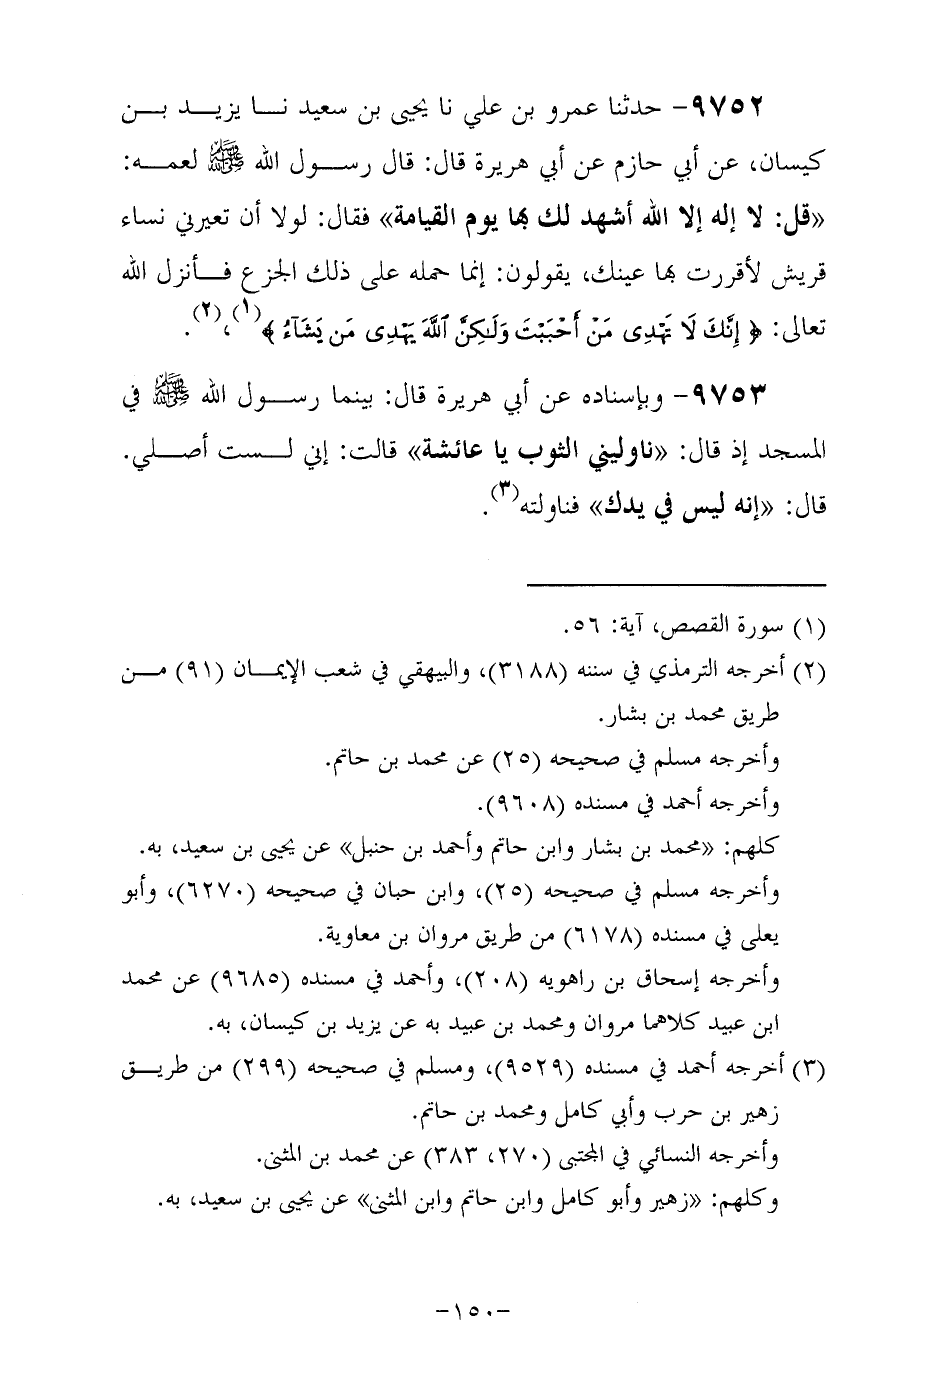 ٩٧٥٢- حدثنا عمرو بن علي نا يحيى بن سعيد نـا يزيـد بـن
كيسان، عن أبي حازم عن أبي هريرة قال: قال رسول الله ﷺ لعمه:
«قل: لا إله إلا الله أشهد لك بها يوم القيامة» فقال: لولا أن تعيرني نساء
قريش لأقررت بها عينك، يقولون: إنما حمله على ذلك الجزع فأنزل الله
تعالى: ﴿إِنَّكَ لَا تَهْدِى مَنْ أَحْبَبْتَ وَلَـٰكِنَّ ٱللَّهَ يَهْدِى مَن يَشَآءُ﴾(١)،(٢).
٩٧٥٣- وبإسناده عن أبي هريرة قال: بينما رسول الله ﷺ في
المسجد إذ قال: «ناوليني الثوب يا عائشة» قالت: إني لست أصلي.
قال: «إنه ليس في يدك» فناولته(٣).
(١) سورة القصص، آية: ٥٦.
(٢) أخرجه الترمذي في سننه (٣١٨٨)، والبيهقي في شعب الإيمان (٩١) من
طريق محمد بن بشار.
وأخرجه مسلم في صحيحه (٢٥) عن محمد بن حاتم.
وأخرجه أحمد في مسنده (٩٦٠٨).
كلهم: «محمد بن بشار وابن حاتم وأحمد بن حنبل» عن يحيى بن سعيد، به.
وأخرجه مسلم في صحيحه (٢٥)، وابن حبان في صحيحه (٦٢٧٠)، وأبو
يعلى في مسنده (٦١٧٨) من طريق مروان بن معاوية.
وأخرجه إسحاق بن راهويه (٢٠٨)، وأحمد في مسنده (٩٦٨٥) عن محمد
ابن عبيد كلاهما مروان ومحمد بن عبيد به عن يزيد بن كيسان، به.
(٣) أخرجه أحمد في مسنده (٩٥٢٩)، ومسلم في صحيحه (٢٩٩) من طريق
زهير بن حرب وأبي كامل ومحمد بن حاتم.
وأخرجه النسائي في المجتبى (٢٧٠، ٣٨٣) عن محمد بن المثنى.
وكلهم: «زهير وأبو كامل وابن حاتم وابن المثنى» عن يحيى بن سعيد، به.
-١٥٠-